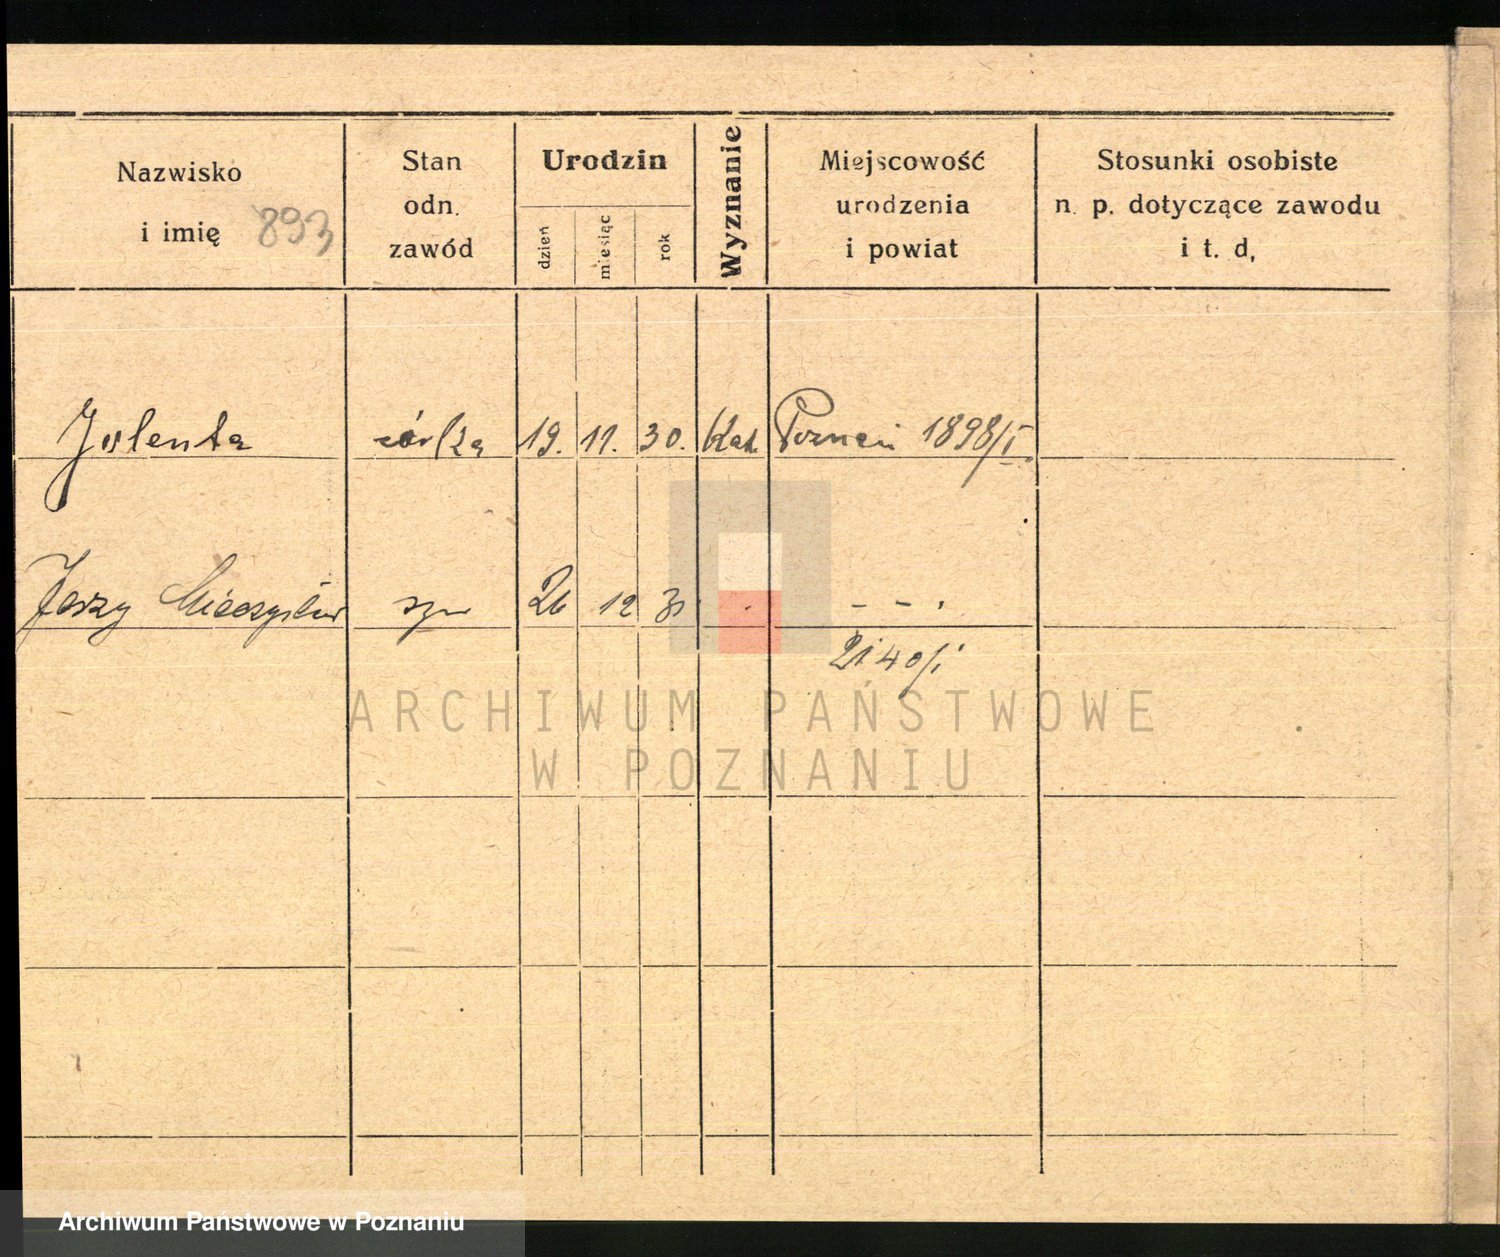 Nazwisko
i imię 893
Stan
odn.
zawód
Urodzin
dzień
miesiąc
rok
Wyznanie
Miejscowość
urodzenia
i powiat
Stosunki osobiste
n. p. dotyczące zawodu
i t. d,
Jolenta córka 19. 11. 30. Kat. Poznań 1898/I.
Jerzy Mieczysław syn 26 12 31 - - - .
2140/i
ARCHIWUM PAŃSTWOWE
W POZNANIU
Archiwum Państwowe w Poznaniu